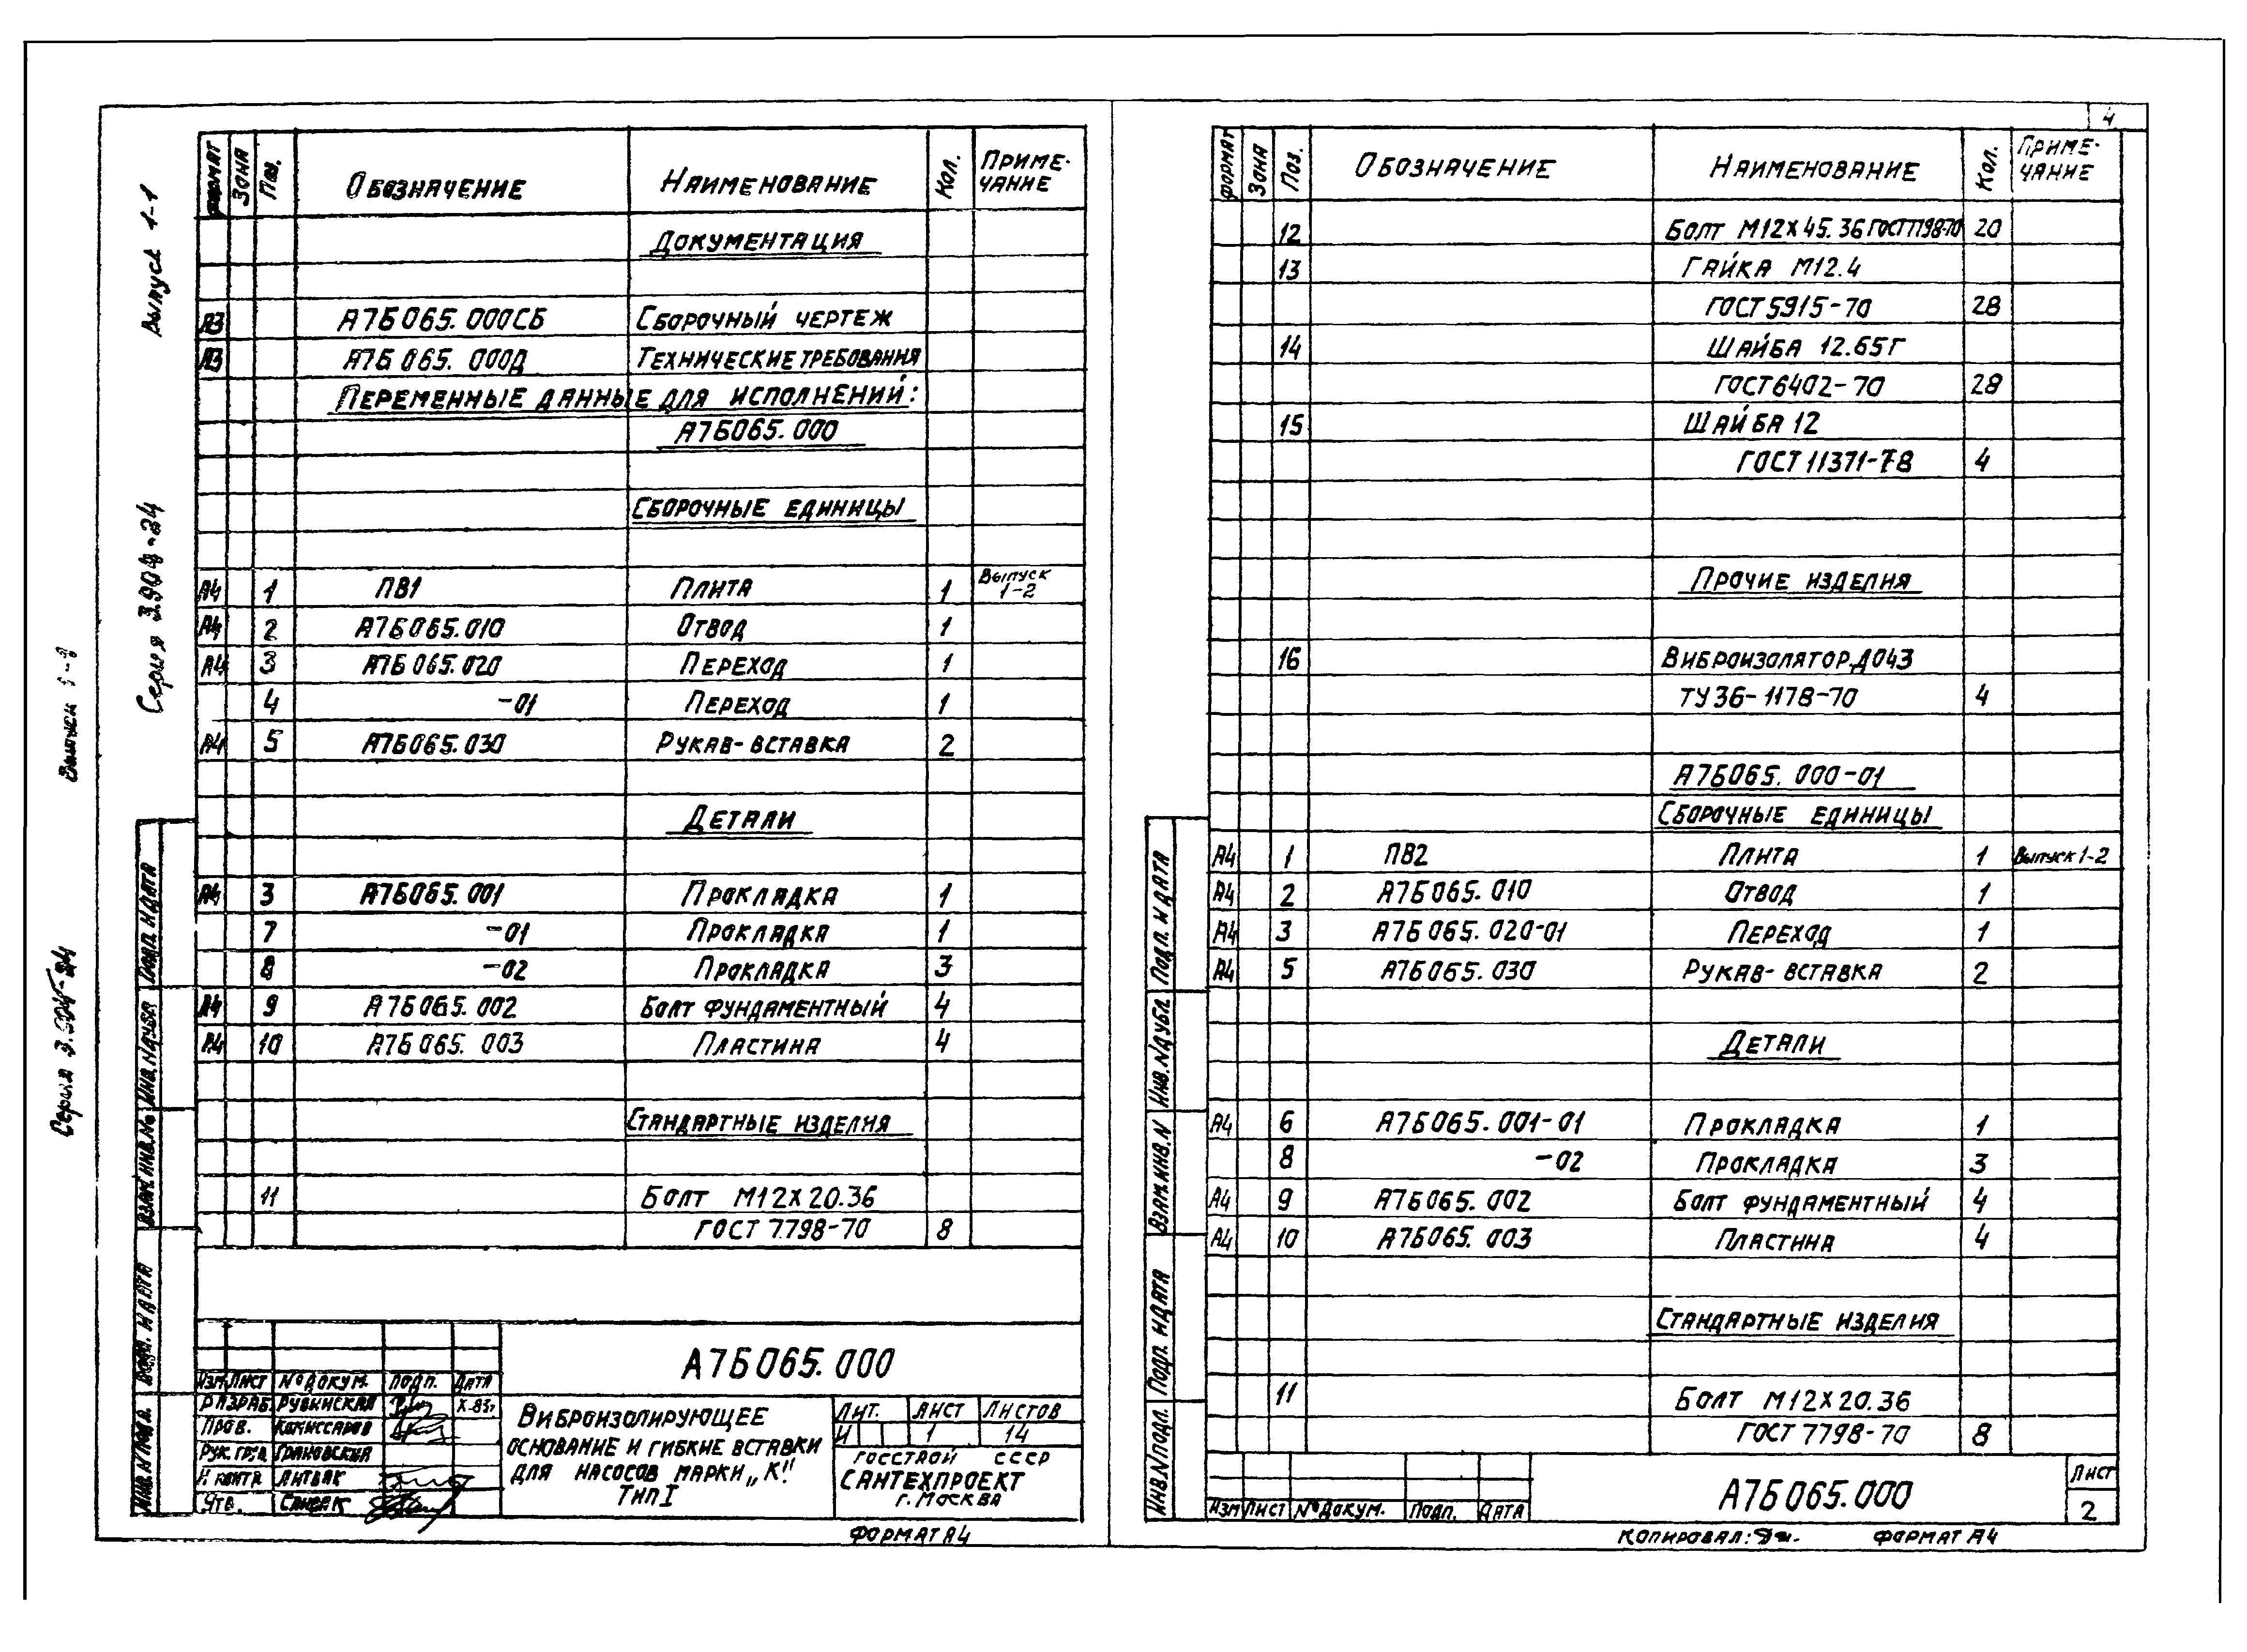 4
Выпуск 1-1
Серия 3.904-24
Серия 3.904-24 Выпуск 1-1
Формат Зона Поз. Обозначение Наименование Кол. Приме-
чание
Документация
А3 А7Б065.000СБ Сборочный чертеж
А3 А7Б065.000Д Технические требования
Переменные данные для исполнений:
А7Б065.000
Сборочные единицы
А4 1 ПВ1 Плита 1 Выпуск
1-2
А4 2 А7Б065.010 Отвод 1
А4 3 А7Б065.020 Переход 1
4 -01 Переход 1
А4 5 А7Б065.030 Рукав-вставка 2
Детали
А4 3 А7Б065.001 Прокладка 1
7 -01 Прокладка 1
8 -02 Прокладка 3
А4 9 А7Б065.002 Болт фундаментный 4
А4 10 А7Б065.003 Пластина 4
Стандартные изделия
11 Болт М12х20.36
ГОСТ 7798-70 8
Инв.N подл. Подп. и дата Взам.инв.№ Инв.N дубл. Подп. и дата
Изм Лист N° докум. Подп. Дата
Разраб. Рубинская X.83г
Пров. Комиссаров
Рук.гр. Грановский
Н контр Литвак
Утв.
А7Б065.000
Виброизолирующее
основание и гибкие вставки
для насосов марки „К"
Тип I
Лит. Лист Листов
И 1 14
Госстрой СССР
Сантехпроект
г. Москва
Формат А4
Формат Зона Поз. Обозначение Наименование Кол. Приме-
чание
12 Болт М12х45.36 ГОСТ7798-70 20
13 Гайка М12.4
ГОСТ 5915-70 28
14 Шайба 12.65Г
ГОСТ 6402-70 28
15 Шайба 12
ГОСТ 11371-78 4
Прочие изделия
16 Виброизолятор До43
ТУ 36-1178-70 4
А7Б065.000-01
Сборочные единицы
А4 1 ПВ2 Плита 1 Выпуск 1-2
А4 2 А7Б065.010 Отвод 1
А4 3 А7Б065.020-01 Переход 1
А4 5 А7Б065.030 Рукав-вставка 2
Детали
А4 6 А7Б065.001-01 Прокладка 1
8 -02 Прокладка 3
А4 9 А7Б065.002 Болт фундаментный 4
А4 10 А7Б065.003 Пластина 4
Стандартные изделия
11 Болт М12х20.36
ГОСТ 7798-70 8
Инв.N подл. Подп. и дата Взам.инв.N Инв.N дубл. Подп. и дата
Изм Лист N° докум. Подп. Дата
А7Б065.000
Лист
2
Копировал: Формат А4